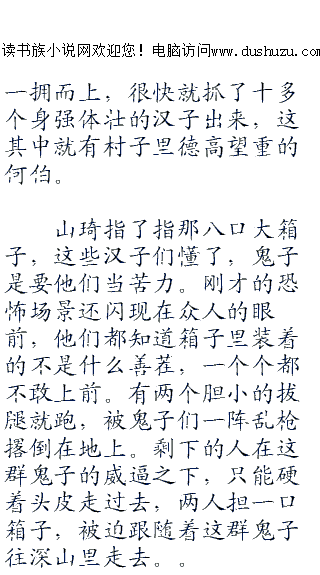 读书族小说网欢迎您！电脑访问www.dushuzu.com
一拥而上，很快就抓了十多
个身强体壮的汉子出来，这
其中就有村子里德高望重的
何伯。
山琦指了指那八口大箱
子，这些汉子们懂了，鬼子
是要他们当苦力。刚才的恐
怖场景还闪现在众人的眼
前，他们都知道箱子里装着
的不是什么善茬，一个个都
不敢上前。有两个胆小的拔
腿就跑，被鬼子们一阵乱枪
撂倒在地上。剩下的人在这
群鬼子的威逼之下，只能硬
着头皮走过去，两人担一口
箱子，被迫跟随着这群鬼子
往深山里走去。。